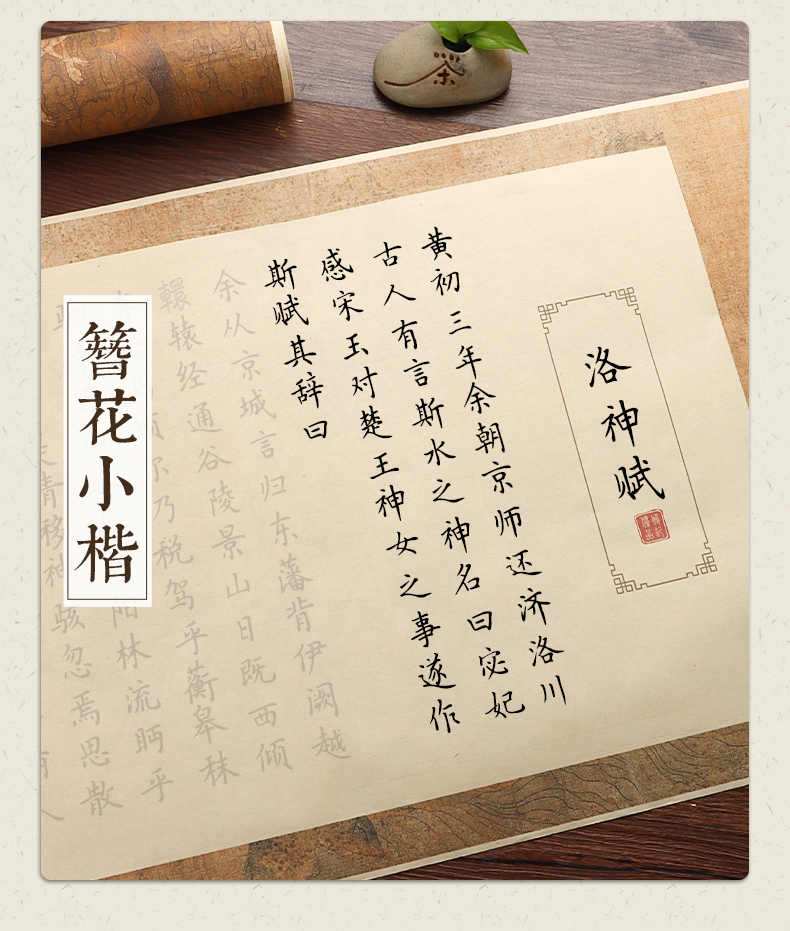 茶
洛神赋
黄初三年余朝京师还济洛川
古人有言斯水之神名曰宓妃
感宋玉对楚王神女之事遂作
斯赋其辞曰
余从京城言归东藩肯伊阙越
轘辕经通谷陵景山日既西倾
尔乃税驾乎蘅皋秣
阳林流眄乎
移神骇忽焉思散
簪花小楷